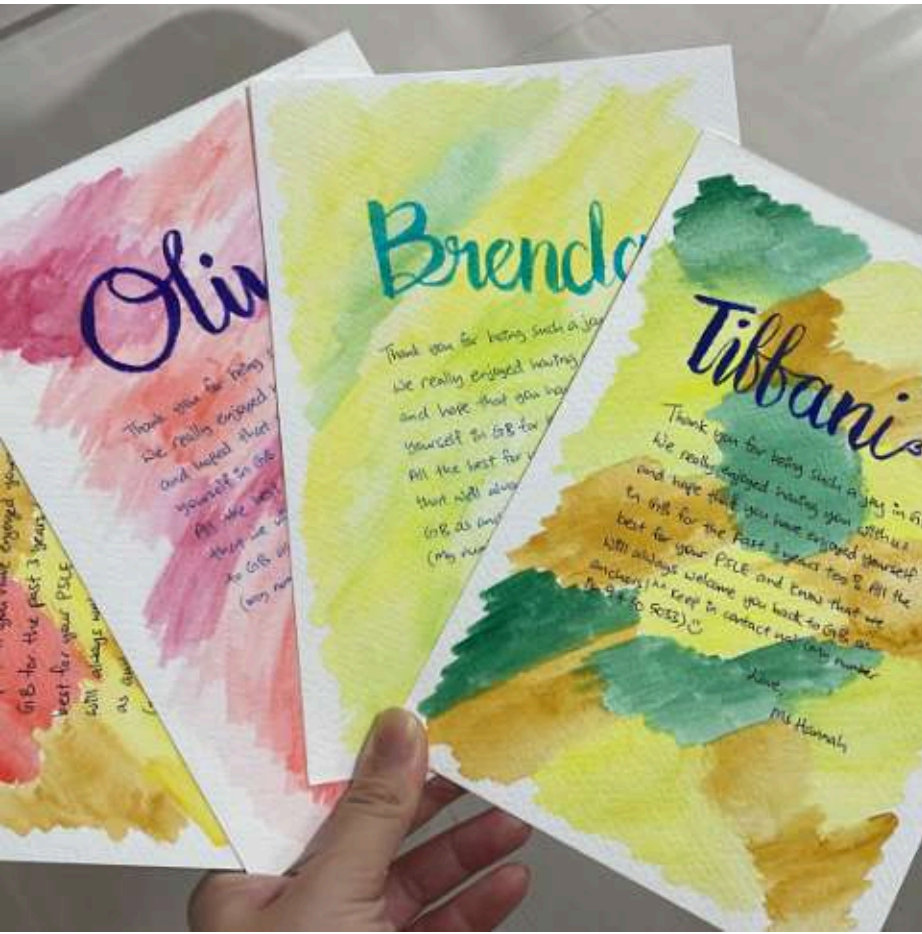 you have enjoyed your
GB for the past 3 years
best for your PSLE
will always
as
Oliv
Thank you for being
We really enjoyed
and hoped that
yourself in GB
All the best
that we
to GB
(my num
Brenda
Thank you for being such a joy
We really enjoyed having
and hope that you have
yourself in GB for
All the best for
that we'll always
GB as an
(my num
Tiffanie
Thank you for being such a joy in G
We really enjoyed having you with us
and hope that you have enjoyed yourself
in GB for the past 3 years too & All the
best for your PSLE and know that we
will always welcome you back to GB as
anchors! ^^ Keep in contact (my number
is to 5033) ☺
Love,
Ms Hannah